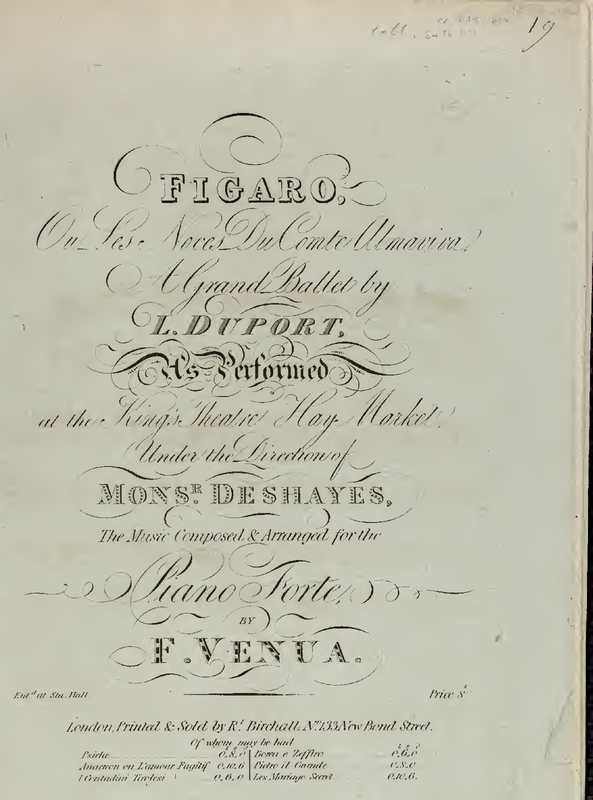 19
FIGARO,
Ou Les Noces Du Comte Almaviva,
A Grand Ballet by
L. DUPORT,
As Performed
at the King's Theatre Hay Market,
Under the Direction of
MONSR. DESHAYES,
The Music Composed & Arranged for the
Piano Forte,
BY
F. VENUA.
Entd. at Sta. Hall. Price 8s
London, Printed & Sold by Rt. Birchall, No. 133 New Bond Street.
Of whom may be had
Psiche 0.8.0 Boren e Zeffiro 0.6.0
Anacreon ou L'amour Fugitif 0.10.6 Pietro il Grande 0.8.0
I Contadini Tirolesi 0.6.0 Les Mariage Secret 0.10.6